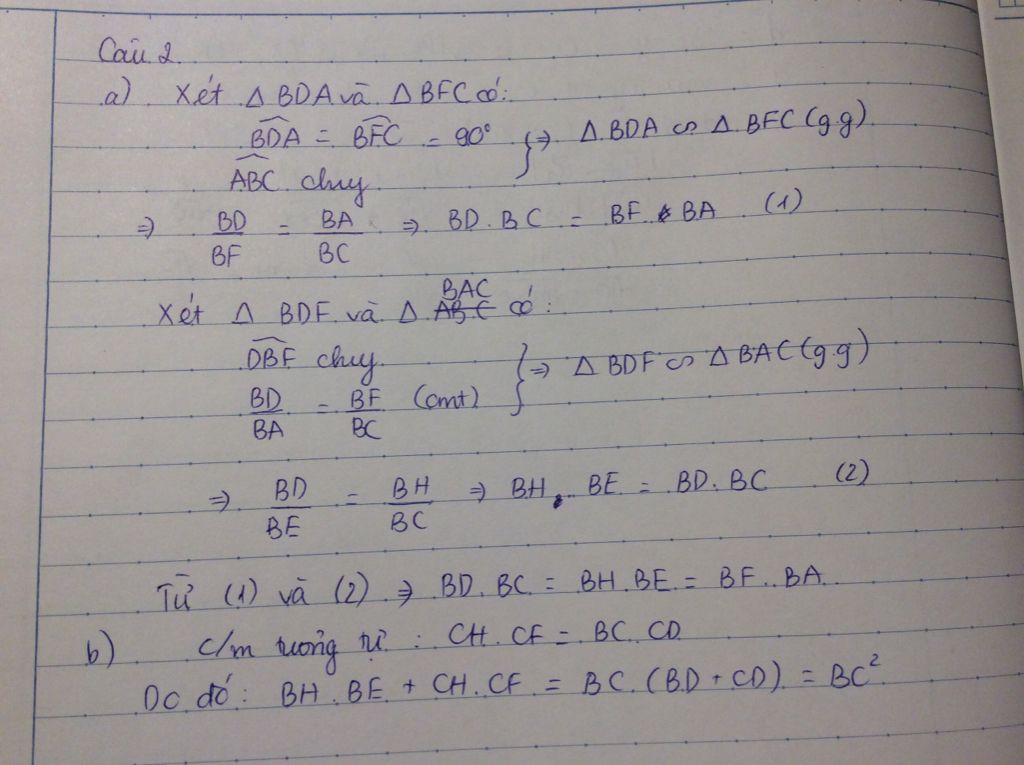 Câu 2.
a) Xét Δ BDA và Δ BFC có:
BDA = BFC = 90° } ⇒ Δ BDA ∽ Δ BFC (g.g)
ABC chuy
⇒ BD/BF = BA/BC ⇒ BD.BC = BF . BA (1)
Xét Δ BDF và Δ BAC có:
DBF chuy } ⇒ Δ BDF ∽ Δ BAC (g.g)
BD/BA = BF/BC (cmt)
⇒ BD/BE = BH/BC ⇒ BH . BE = BD.BC (2)
Từ (1) và (2) ⇒ BD.BC = BH.BE = BF.BA
b) c/m tương tự : CH.CF = BC.CD
Do đó: BH.BE + CH.CF = BC.(BD+CD) = BC²